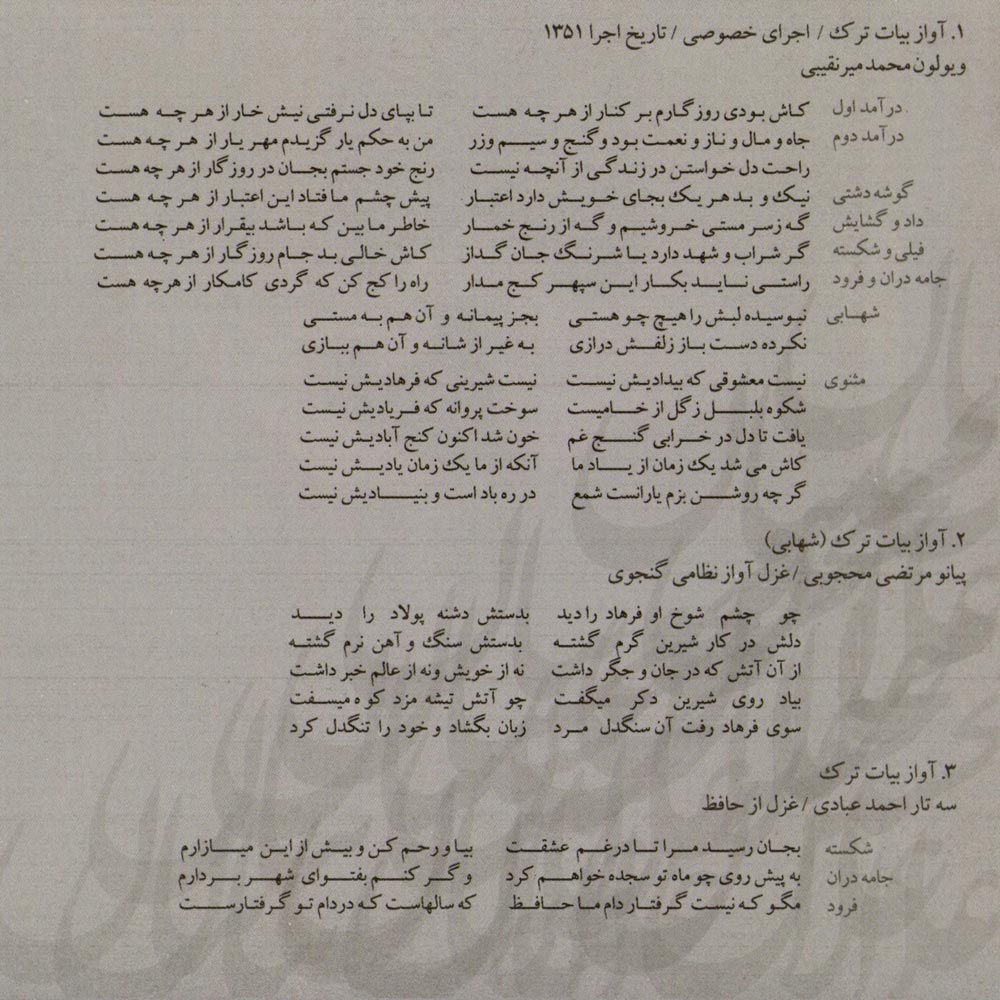 ۱. آواز بیات ترک / اجرای خصوصی / تاریخ اجرا ۱۳۵۱
ویولون محمد میرنقیبی
درآمد اول کاش بودی روزگارم بر کنار از هر چه هست تا بپای دل نرفتی نیش خار از هر چه هست
درآمد دوم جاه و مال و ناز و نعمت بود و گنج و سیم وزر من به حکم یار گزیدم مهر یار از هر چه هست
راحت دل خواستن در زندگی از آنچه نیست رنج خود جستم بجان در روزگار از هر چه هست
گوشه دشتی نیک و بد هر یک بجای خویش دارد اعتبار پیش چشم ما فتاد این اعتبار از هر چه هست
داد و گشایش گه زسر مستی خروشیم و گه از رنج خمار خاطر ما بین که باشد بیقرار از هر چه هست
فیلی و شکسته گر شراب و شهد دارد یا شرنگ جان گداز کاش خالی بد جام روزگار از هر چه هست
جامه دران و فرود راستی ناید بکار این سپهر کج مدار راه را کج کن که گردی کامکار از هرچه هست
شهابی نبوسیده لبش را هیچ چو هستی بجز پیمانه و آن هم به مستی
نکرده دست باز زلفش درازی به غیر از شانه و آن هم ببازی
مثنوی نیست معشوقی که بیدادیش نیست نیست شیرینی که فرهادیش نیست
شکوه بلبل زگل از خامیست سوخت پروانه که فریادیش نیست
یافت تا دل در خرابی گنج غم خون شد اکنون کنج آبادیش نیست
کاش می شد یک زمان از یاد ما آنکه از ما یک زمان یادیش نیست
گر چه روشن بزم یارانست شمع در ره باد است و بنیادیش نیست
۲. آواز بیات ترک (شهابی)
پیانو مرتضی محجوبی / غزل آواز نظامی گنجوی
چو چشم شوخ او فرهاد را دید بدستش دشنه پولاد را دید
دلش در کار شیرین گرم گشته بدستش سنگ و آهن نرم گشته
از آن آتش که در جان و جگر داشت نه از خویش ونه از عالم خبر داشت
بیاد روی شیرین دکر میگفت چو آتش تیشه مزد کوه میسفت
سوی فرهاد رفت آن سنگدل مرد زبان بگشاد و خود را تنگدل کرد
۳. آواز بیات ترک
سه تار احمد عبادی / غزل از حافظ
شکسته بجان رسید مرا تا درغم عشقت بیا و رحم کن و بیش از این میازارم
جامه دران به پیش روی چو ماه تو سجده خواهم کرد و گر کنم بفتوای شهر بردارم
فرود مگو که نیست گرفتار دام ما حافظ که سالهاست که دردام تو گرفتارست